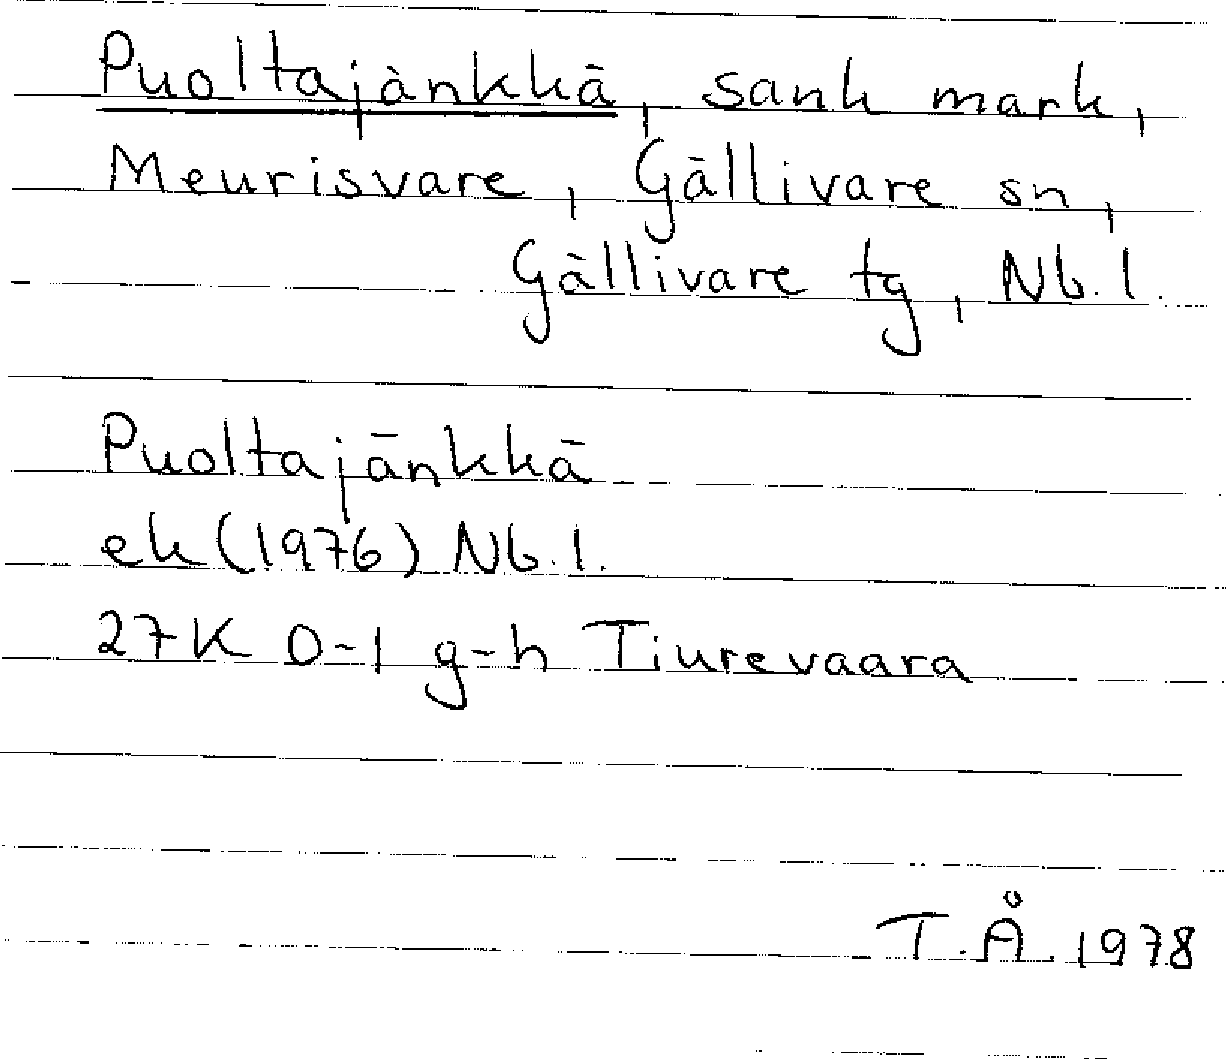 Puoltajänkkä, sank mark,
Meurisvare, Gällivare sn,
Gällivare tg, Nb.l.
Puoltajänkkä
ek (1976) Nb.l.
27K 0-1 g-h Tiurevaara
T.Å. 1978